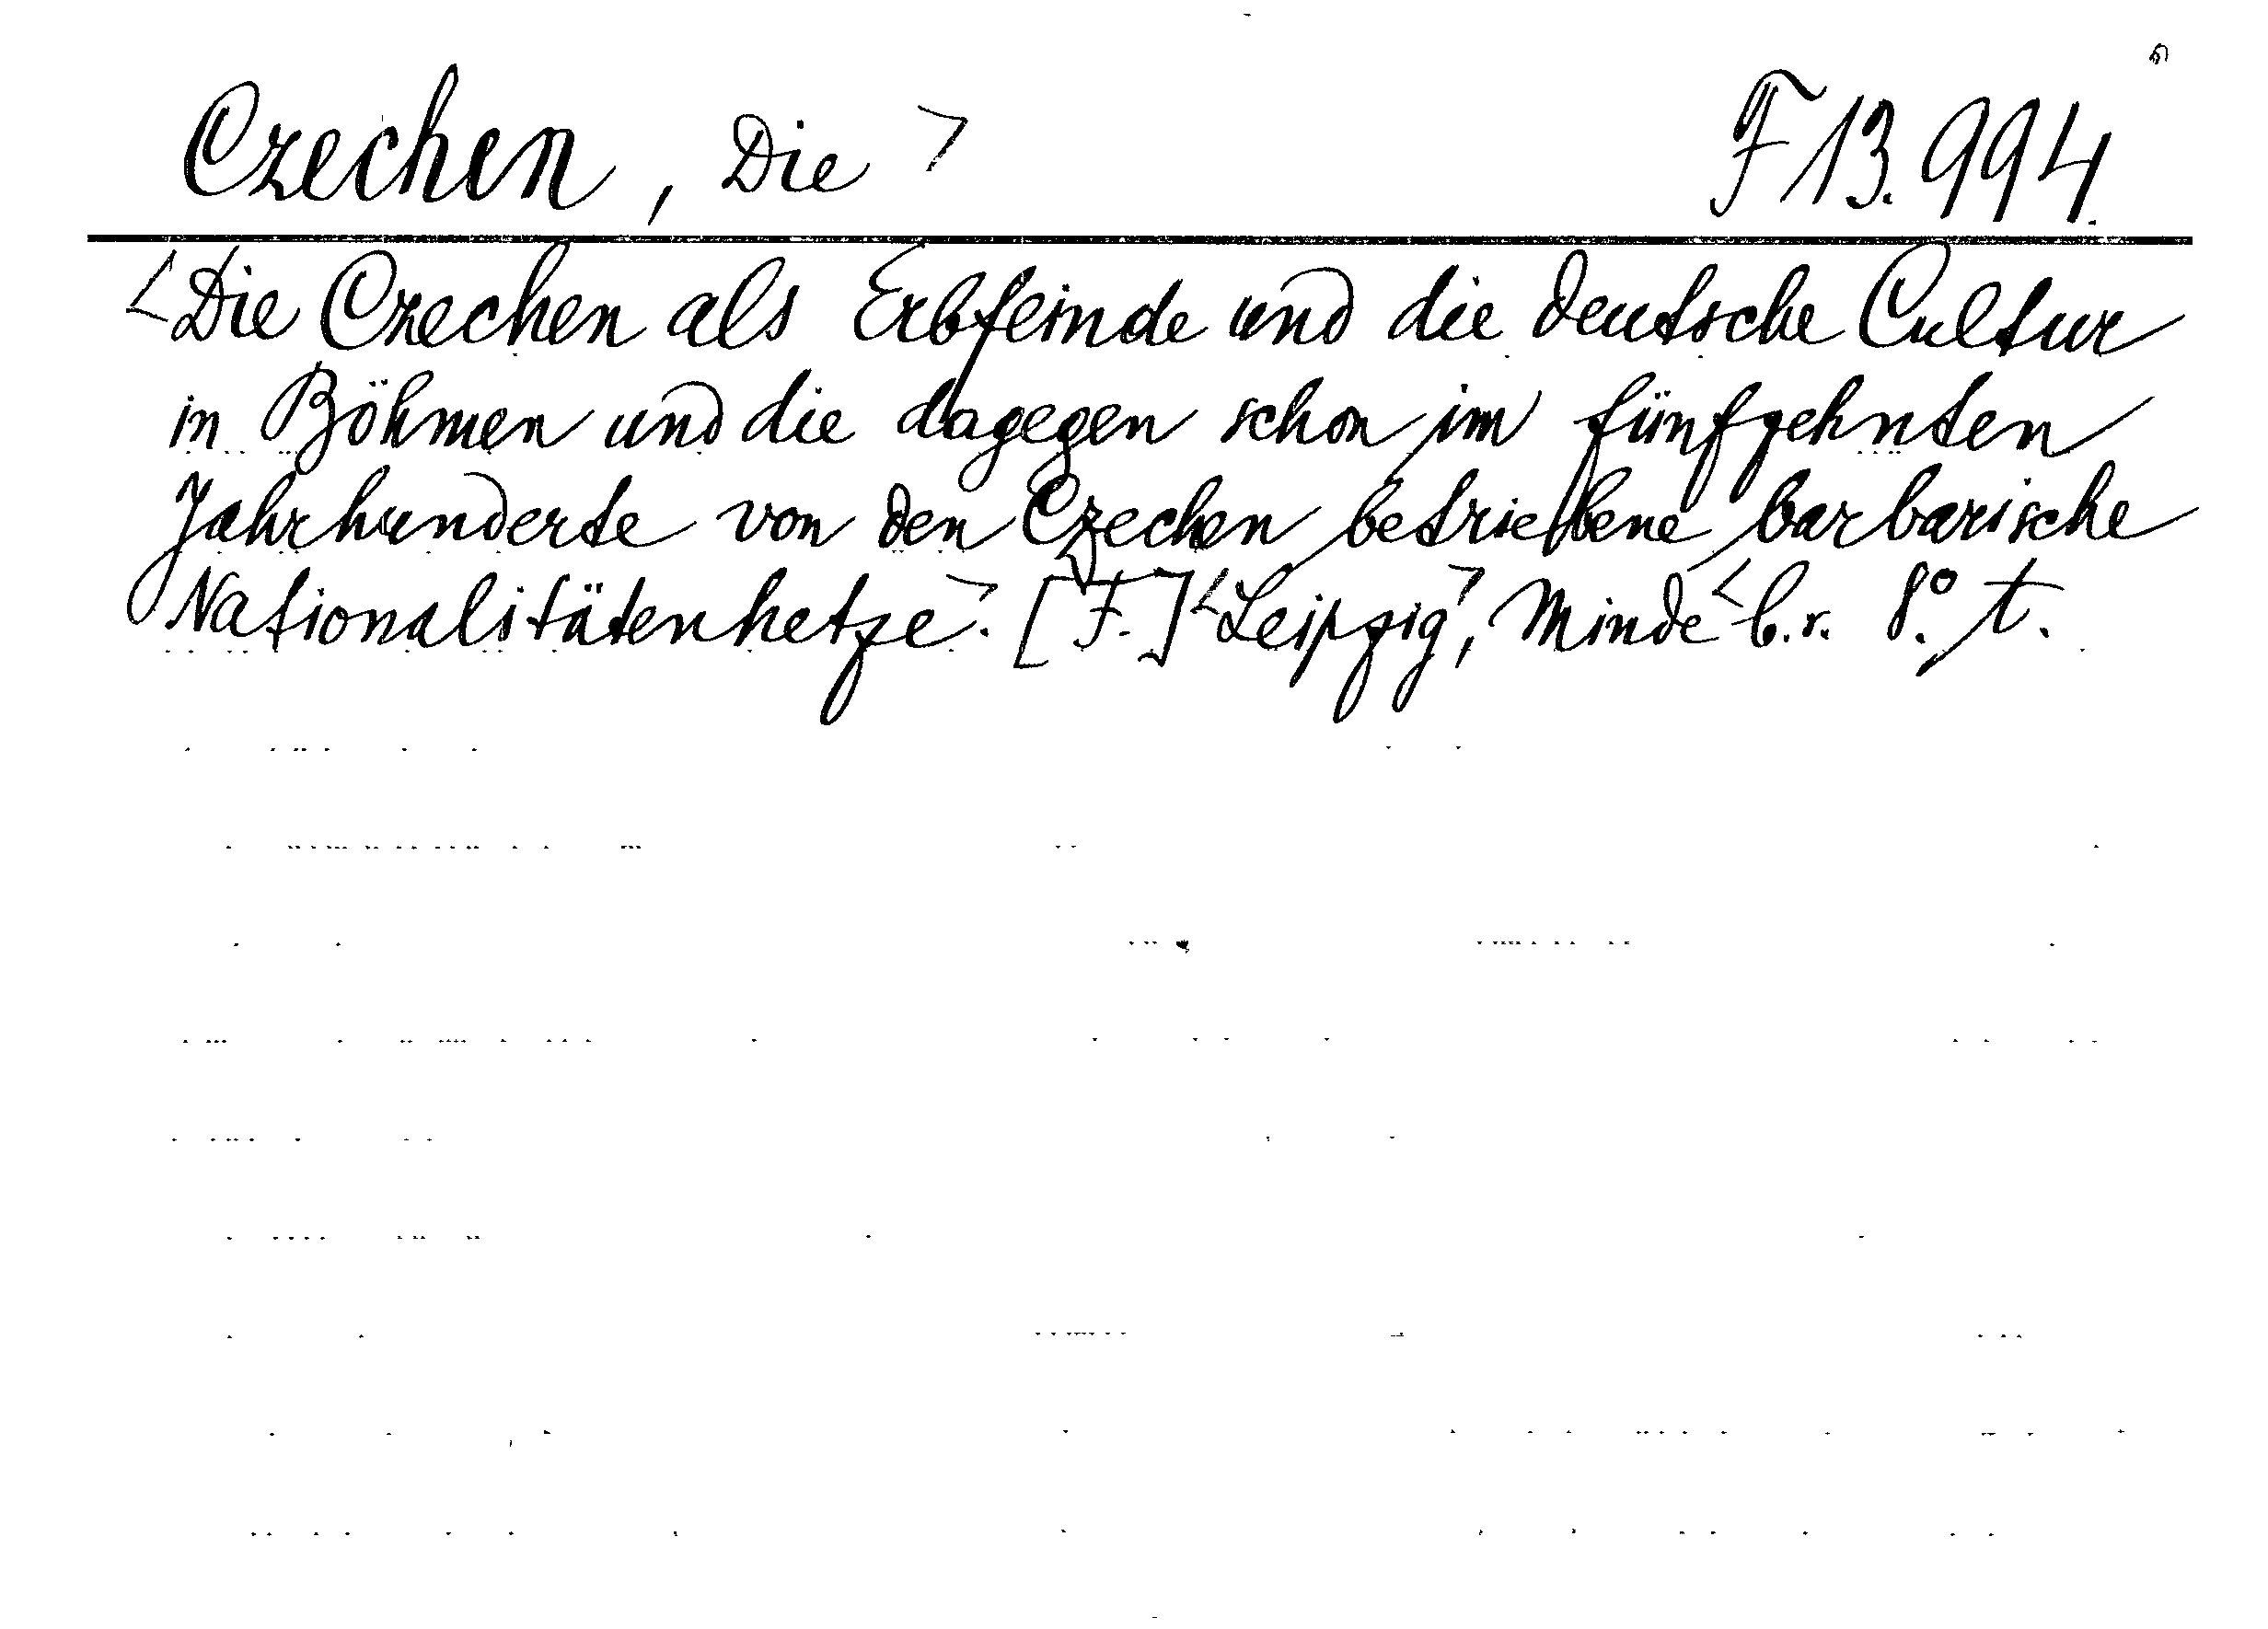 Czechen, Die > F 13.994.
<Die Czechen als Erbfeinde und die deutsche Cultur
in Böhmen und die dagegen schon im fünfzehnten
Jahrhunderte von den Czechen betriebene barbarische
Nationalitätenhetze>. [F.] <Leipzig>, Minde <b.r. 8°. t.